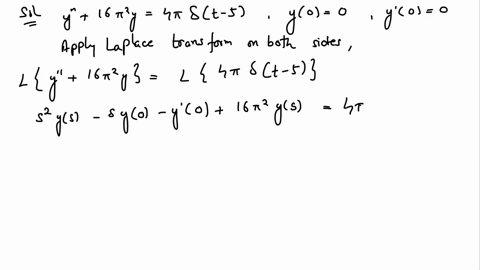 Sol y" + 16π²y = 4π δ(t-5) , y(0) = 0 , y'(0) = 0
Apply Laplace transform on both sides,
L{y" + 16π²y} = L{4π δ(t-5)}
s² y(s) - s y(0) - y'(0) + 16π² y(s) = 4π